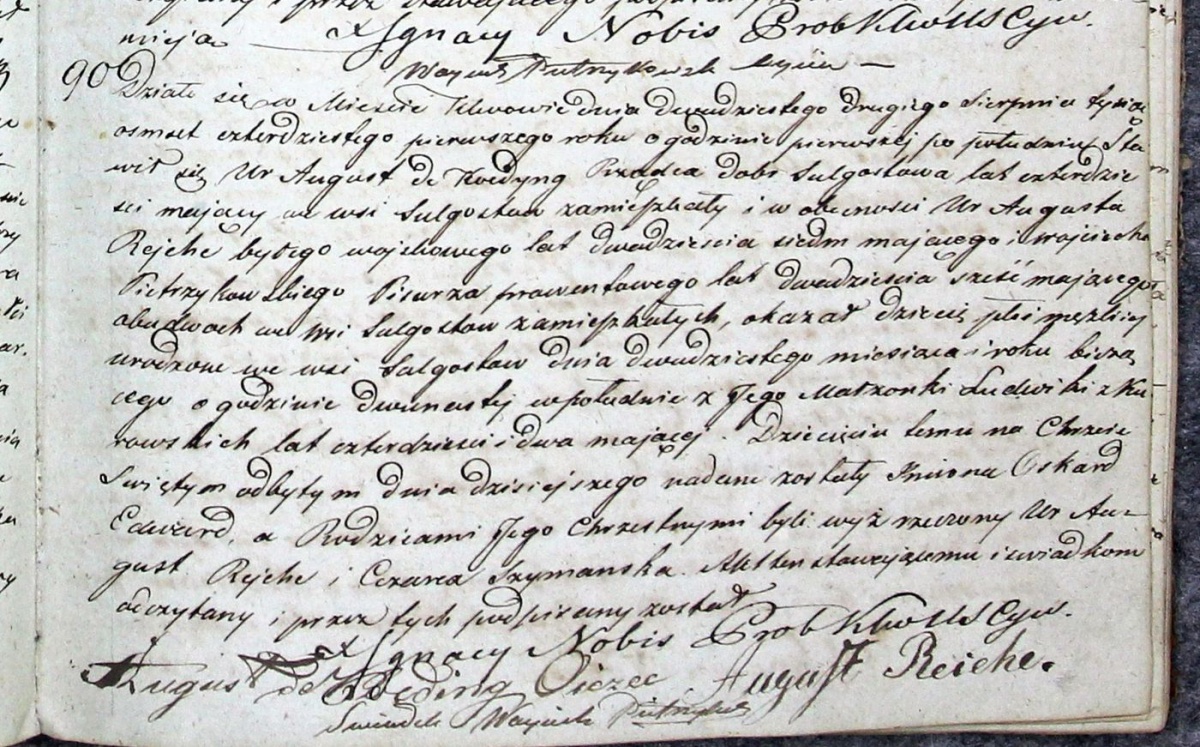 mieja X Ignacy Nobis Prob KLwU S Cyw.
Wojciech Pietrzykowski
90 Działo się w Mieście Lwowie dnia dwudziestego drugiego Sierpnia tysiąc
osmset czterdziestego pierwszego roku o godzinie pierwszej po południu Sta
wił się Ur August de Koedyng Rządca dobr Sulgostowa lat czterdzie
sci mający we wsi Sulgostow zamieszkały i w obecności Ur Augusta
Rejche byłego wojskowego lat dwadzieścia siedm mającego i Wojciecha
Pietrzykowskiego Pisarza prowentowego lat dwadzieścia sześć mającego
obudwoch we wsi Sulgostow zamieszkałych, okazał dziecię płci męzkiej
urodzone we wsi Sulgostow dnia dwudziestego miesiąca i roku bieżą
cego o godzinie dwunastej w południe z Jego Małżonki Ludwiki z Ku
rowskich lat czterdzieści i dwa mającej. Dziecięciu temu na Chrzcie
Swiętym odbytym dnia dzisiejszego nadane zostały Imiona Oskard
Edward, a Rodzicami Jego Chrzestnymi byli wyż rzeczony Ur Au-
gust Rejche i Cezarea Szymanska. Akt ten stawającemu i świadkom
odczytany i przez tych podpisany został
X Ignacy Nobis Prob KLwU S Cyw.
August de Köding Ociec August Reiche.
Swiadek Wojciech Pietrzykowski